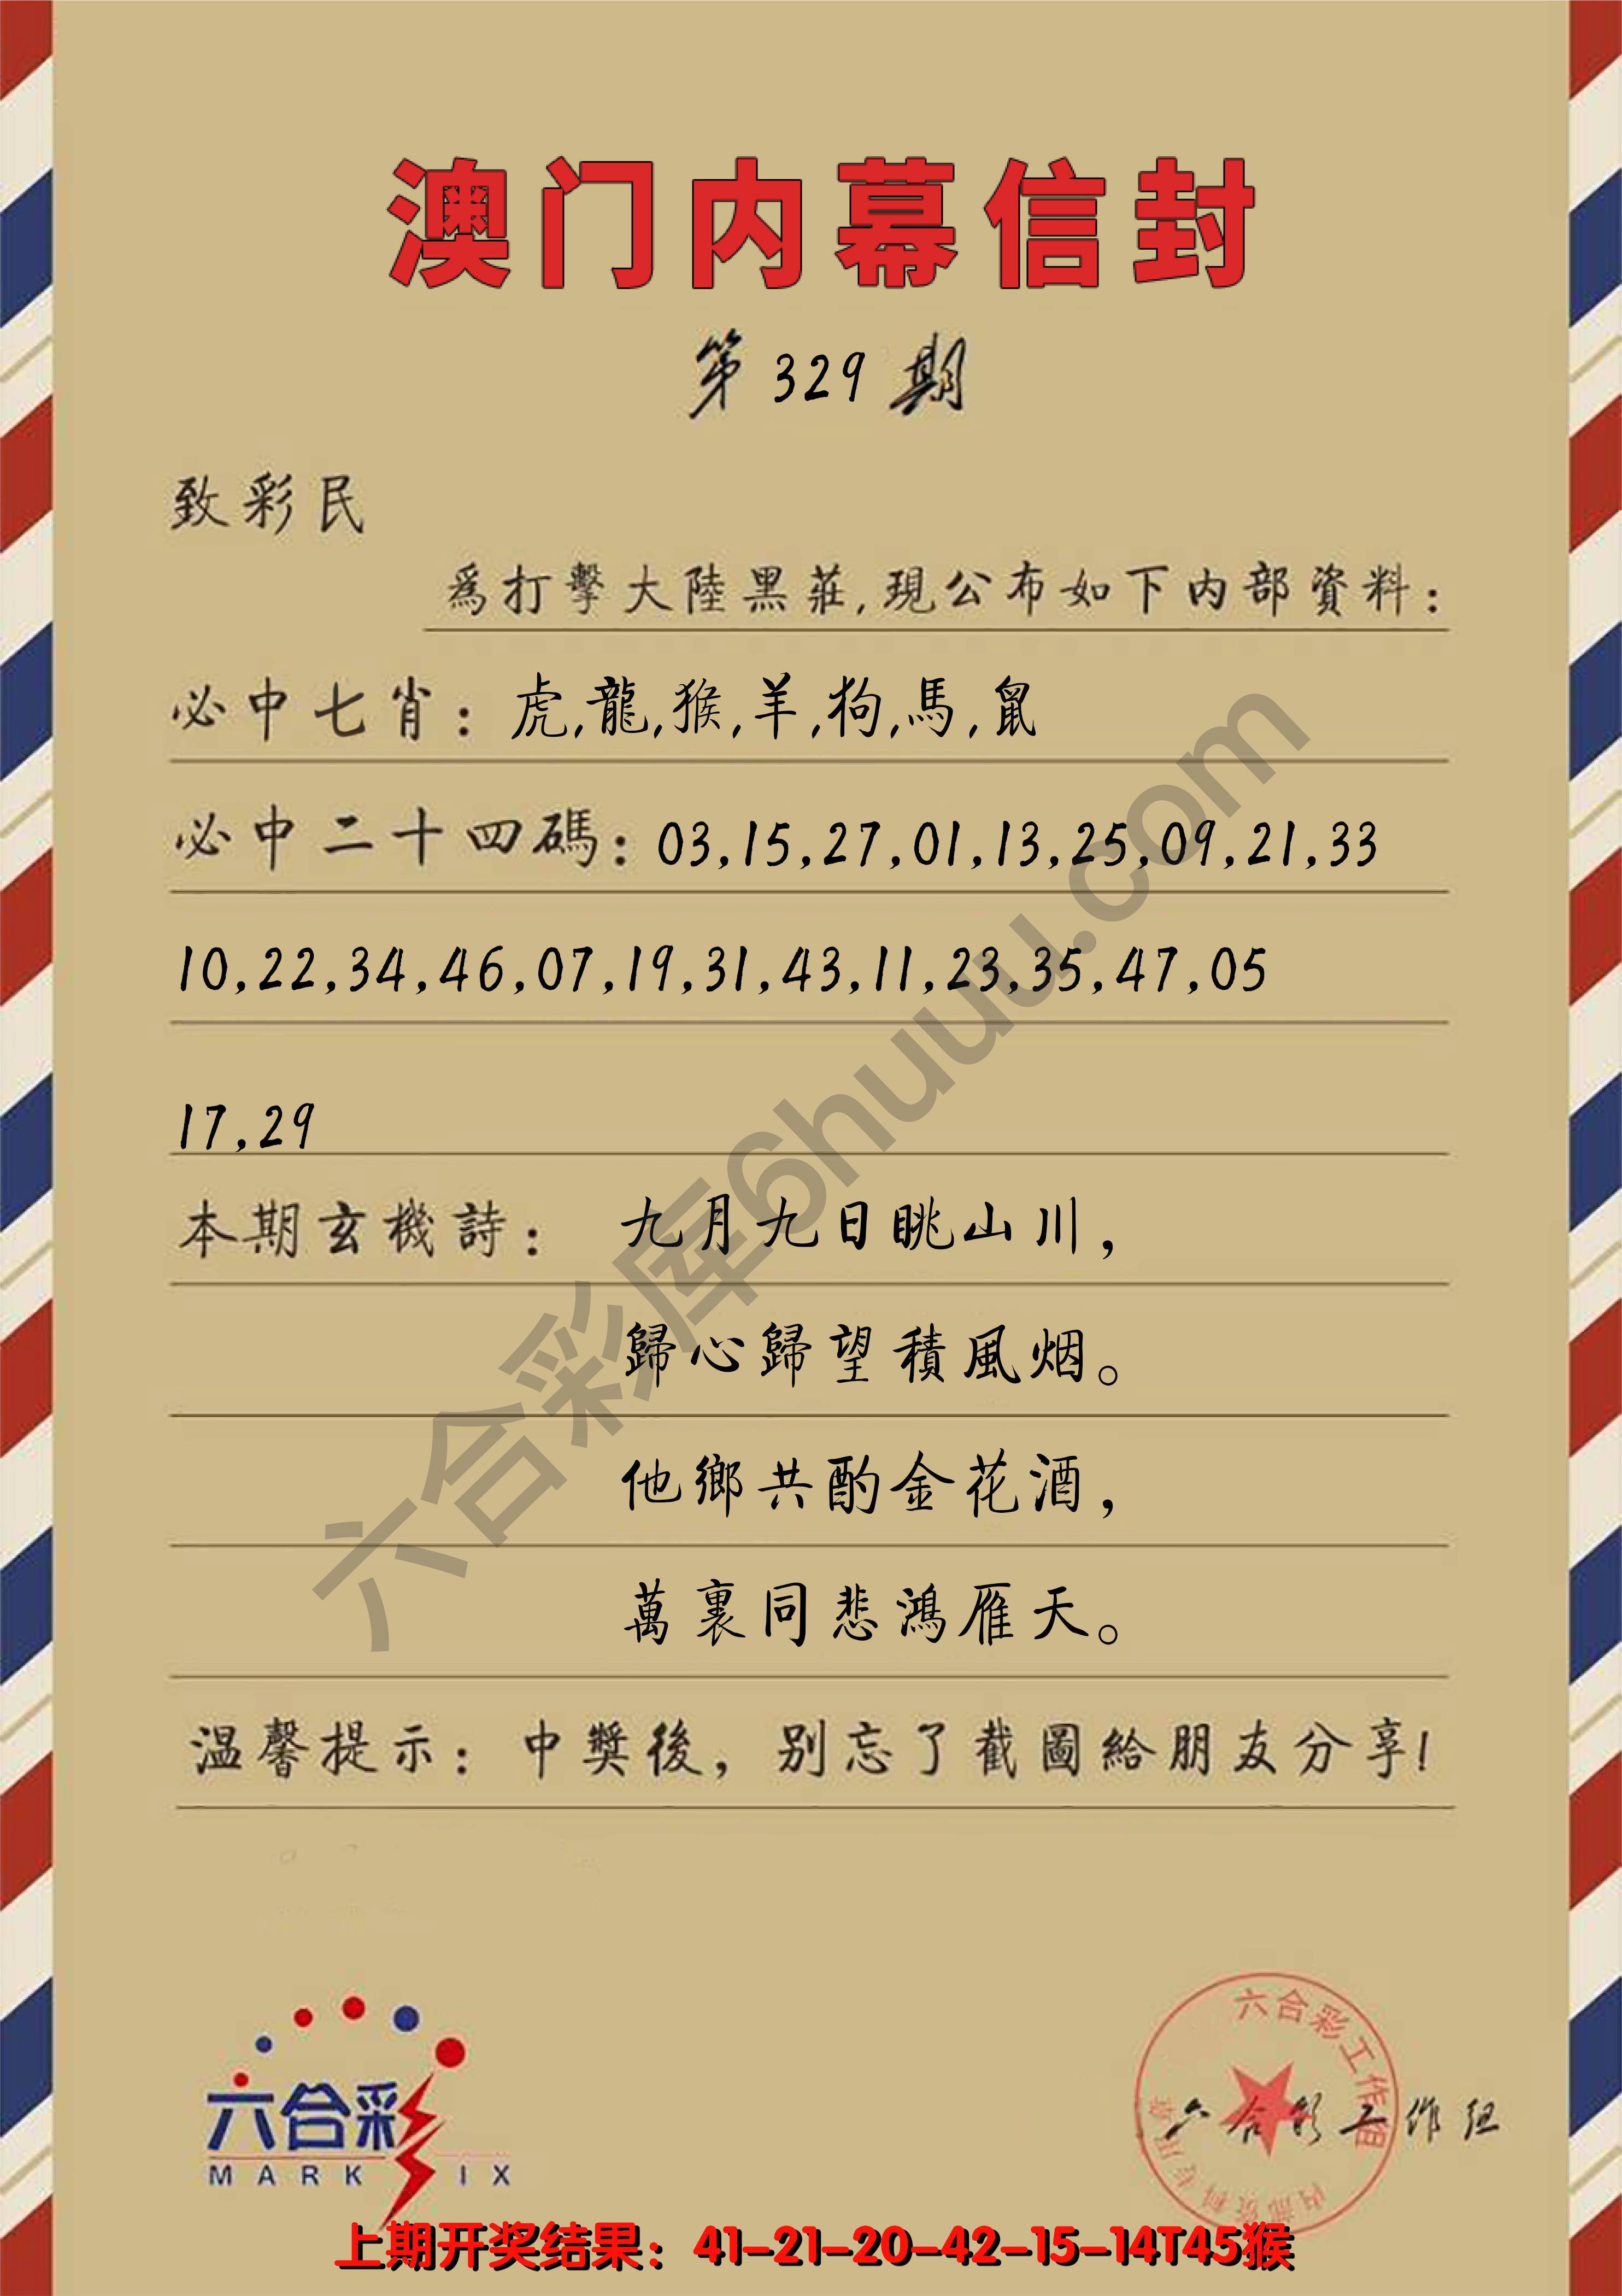 澳门内幕信封
第 329 期
致彩民
爲打擊大陸黑莊,現公布如下内部資料:
必中七肖: 虎,龍,猴,羊,狗,馬,鼠
必中二十四碼: 03,15,27,01,13,25,09,21,33
10,22,34,46,07,19,31,43,11,23,35,47,05
17,29
本期玄機詩: 九月九日眺山川,
歸心歸望積風烟。
他鄉共酌金花酒,
萬裏同悲鴻雁天。
温馨提示: 中獎後, 别忘了截圖給朋友分享!
六合彩库6huuu.com
六合彩
MARK SIX
六合彩工作组
内部资料专用章
六合彩工作组
上期开奖结果: 41-21-20-42-15-14T45猴